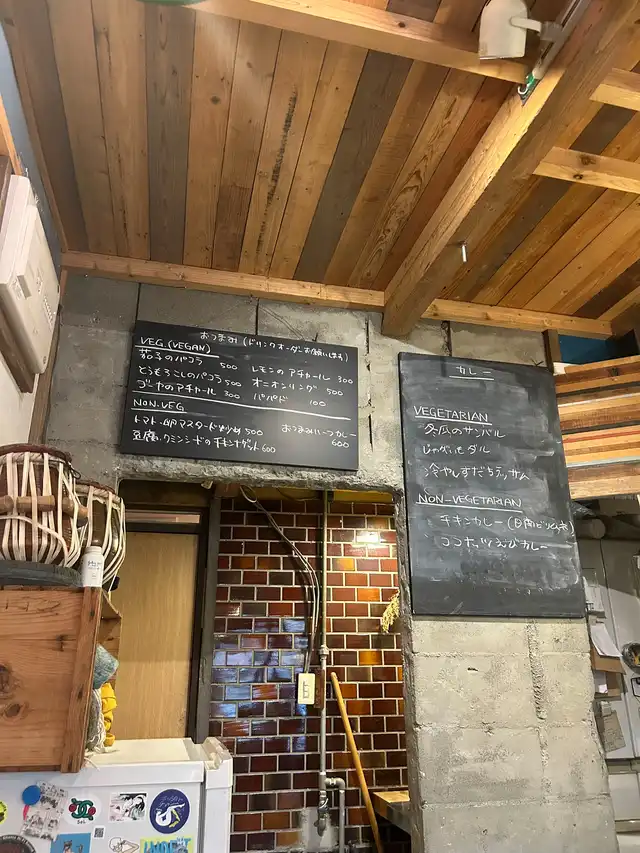 おつまみ(ドリンクオーダーお願いします)
VEG.(VEGAN)
茄子のパコラ 500 レモンのアチャール 300
とうもろこしのパコラ 500 オニオンリング 500
ゴーヤのアチャール 300 パパド 100
NON.VEG
トマト・卵マスタード炒め 500 おつまみハーフカレー 600
豆腐・クミンシードのチキンナゲット 600
カレー
VEGETARIAN
冬瓜のサンバル
じゃがいもダル
冷やしすだちラッサム
NON-VEGETARIAN
チキンカレー
ココナッツえびカレー